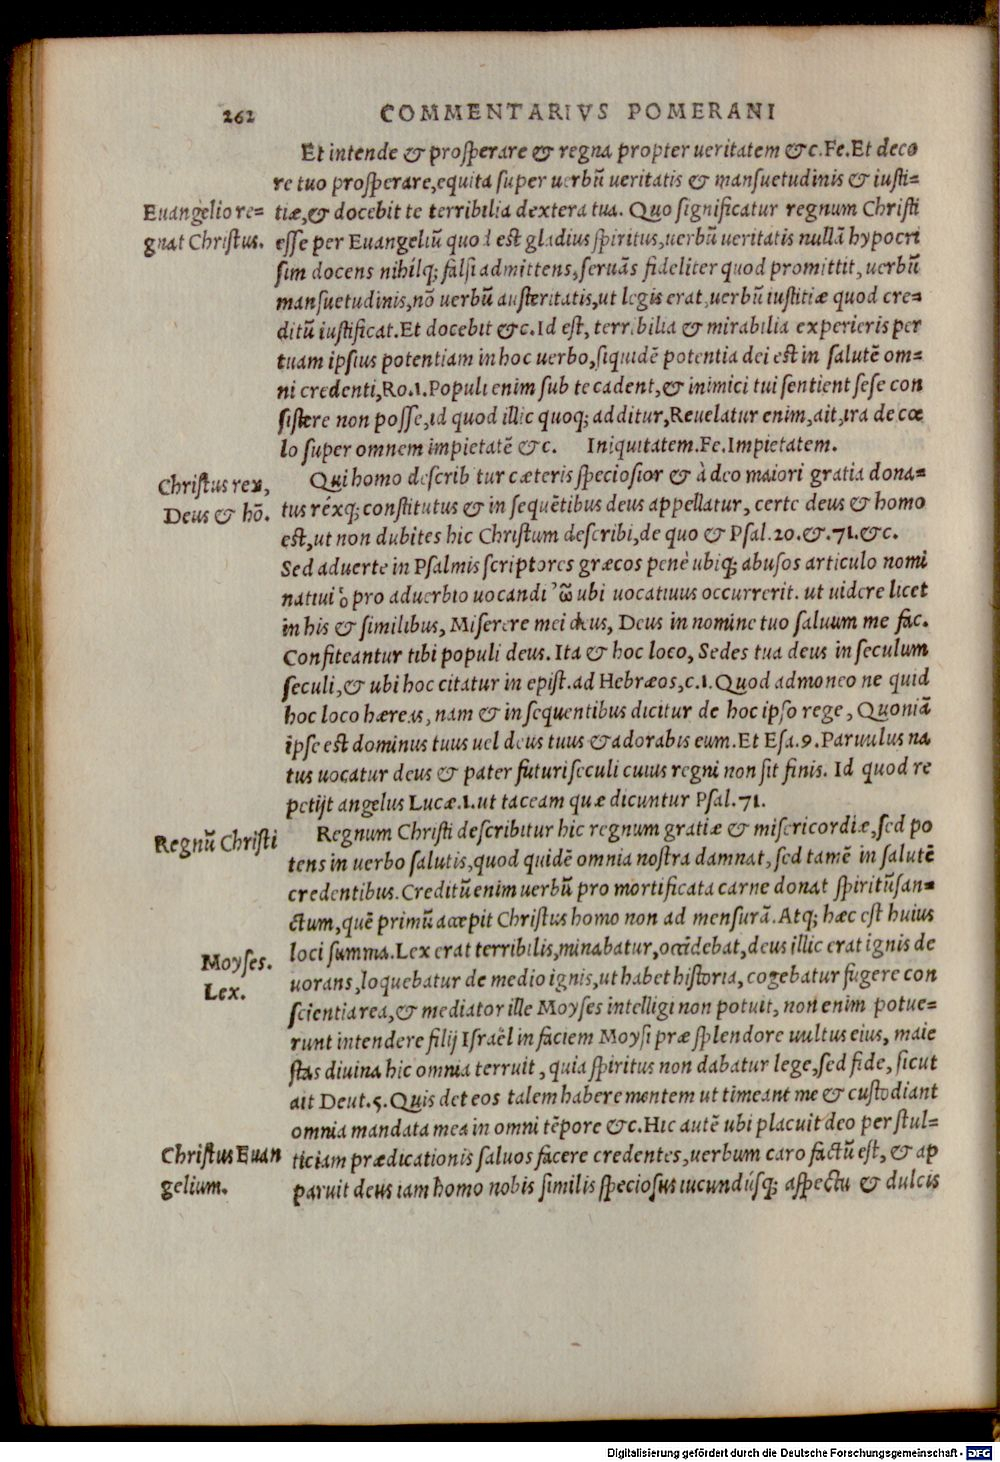 262 COMMENTARIVS POMERANI
Et intende & prosperare & regna propter ueritatem &c. Fe. Et deco
re tuo prosperare, equita super uerbũ ueritatis & mansuetudinis & iusti=
Euangelio re=
tiæ, & docebit te terribilia dextera tua. Quo significatur regnum Christi
gnat Christus.
esse per Euangeliũ quod est gladius spiritus, uerbũ ueritatis nullã hypocri
sim docens nihilq; falsi admittens, seruãs fideliter quod promittit, uerbũ
mansuetudinis, nõ uerbũ austeritatis, ut legis erat, uerbũ iustitiæ quod cre=
ditũ iustificat. Et docebit &c. Id est, terribilia & mirabilia experieris per
tuam ipsius potentiam in hoc uerbo, siquidẽ potentia dei est in salutẽ om=
ni credenti, Ro.1. Populi enim sub te cadent, & inimici tui sentient sese con
sistere non posse, id quod illic quoq; additur, Reuelatur enim, ait, ira de cœ
lo super omnem impietatẽ &c. Iniquitatem. Fe. Impietatem.
Christus rex,
Qui homo describitur cæteris speciosior & à deo maiori gratia dona=
Deus & hõ.
tus réxq; constitutus & in sequẽtibus deus appellatur, certe deus & homo
est, ut non dubites hic Christum describi, de quo & Psal.20.&.71.&c.
Sed aduerte in Psalmis scriptores græcos penè ubiq; abusos articulo nomi
natiui ὁ pro aduerbio uocandi ὦ ubi uocatiuus occurrerit. ut uidere licet
in his & similibus, Miserere mei deus, Deus in nomine tuo saluum me fac.
Confiteantur tibi populi deus. Ita & hoc loco, Sedes tua deus in seculum
seculi, & ubi hoc citatur in epist. ad Hebræos, c.1. Quod admoneo ne quid
hoc loco hæreas, nam & in sequentibus dicitur de hoc ipso rege, Quoniã
ipse est dominus tuus uel deus tuus & adorabis eum. Et Esa.9. Paruulus na
tus uocatur deus & pater futuri seculi cuius regni non sit finis. Id quod re
petijt angelus Lucæ.1. ut taceam quæ dicuntur Psal.71.
Regnũ Christi
Regnum Christi describitur hic regnum gratiæ & misericordiæ, sed po
tens in uerbo salutis, quod quidẽ omnia nostra damnat, sed tamẽ in salutẽ
credentibus. Creditũ enim uerbũ pro mortificata carne donat spiritũ san=
ctum, quẽ primũ accepit Christus homo non ad mensurã. Atq; hæc est huius
loci summa. Lex erat terribilis, minabatur, occidebat, deus illic erat ignis de
Moyses.
uorans, loquebatur de medio ignis, ut habet historia, cogebatur fugere con
Lex.
scientia rea, & mediator ille Moyses intelligi non potuit, non enim potue=
runt intendere filij Israël in faciem Moysi præ splendore uultus eius, maie
stas diuina hic omnia terruit, quia spiritus non dabatur lege, sed fide, sicut
ait Deut.5. Quis det eos talem habere mentem ut timeant me & custodiant
omnia mandata mea in omni tẽpore &c. Hic autẽ ubi placuit deo per stul=
Christus Euan
ticiam prædicationis saluos facere credentes, uerbum caro factũ est, & ap
gelium.
paruit deus iam homo nobis similis speciosus iucundúsq; aspectu & dulcis
Digitalisierung gefördert durch die Deutsche Forschungsgemeinschaft - DFG